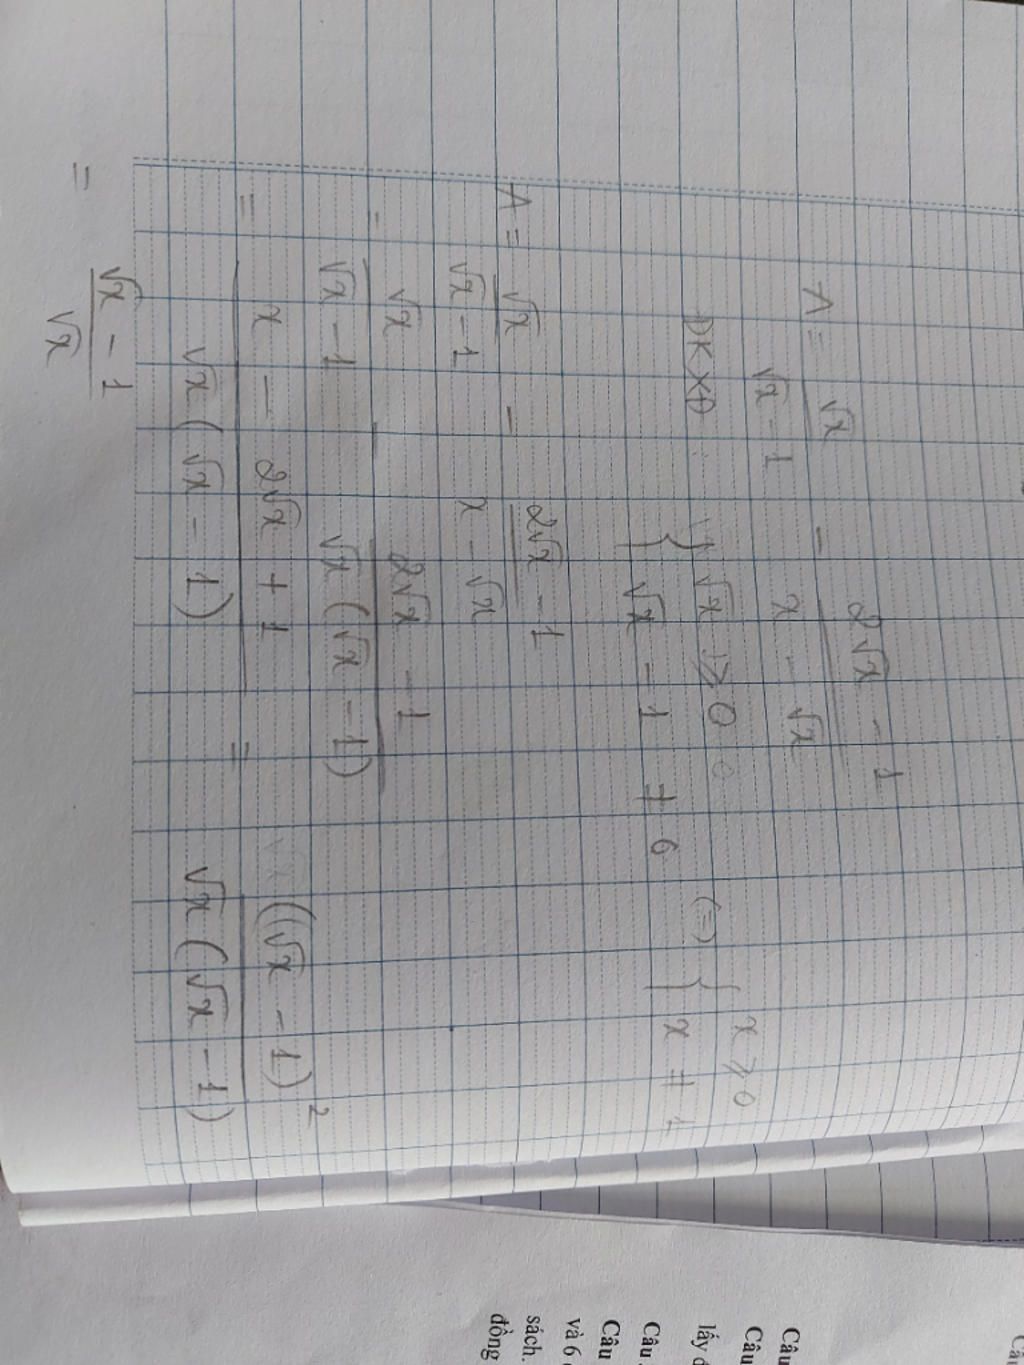 A = √x / (√x - 1) - (2√x - 1) / (x - √x)
ĐKXĐ: { √x ⩾ 0 (=) { x ⩾ 0
{ √x - 1 ≠ 0 { x ≠ 1
A = √x / (√x - 1) - (2√x - 1) / (x - √x)
= √x / (√x - 1) - (2√x - 1) / (√x (√x - 1))
= (x - 2√x + 1) / (√x (√x - 1)) = ((√x - 1)² / (√x (√x - 1))
= (√x - 1) / √x
Câu
Câu
lấy
Câu
Câu
và 6
sách.
đồng